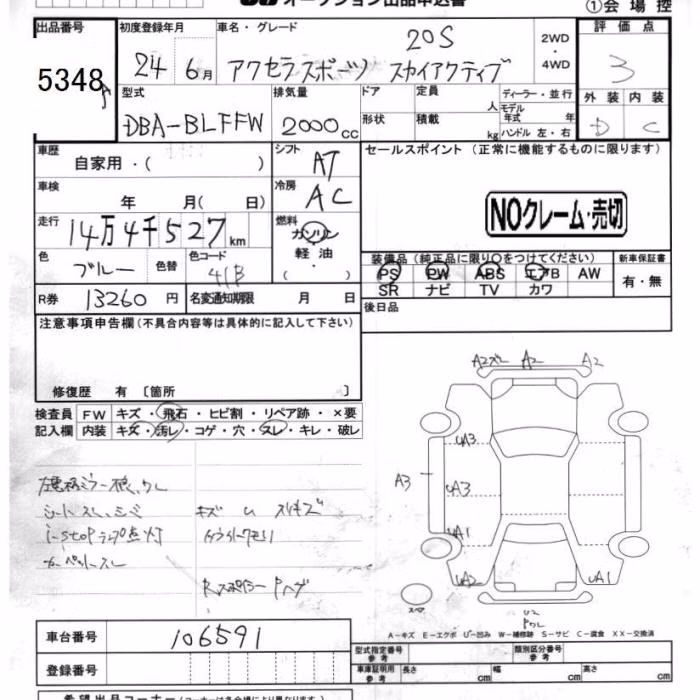 オークション出品申込書
①会場控
出品番号
5348
初度登録年月
24 6月
車名・グレード
20S
アクセラスポーツ スカイアクティブ
2WD
・
4WD
評価点
3
外装 内装
D C
型式
DBA-BLFFW
排気量
2000cc
ドア
形状
定員
人
積載
kg
ディーラー・並行
モデル
年式 年
ハンドル 左・右
車歴
自家用・( )
シフト
AT
セールスポイント(正常に機能するものに限ります)
車検
年 月( 日)
冷房
AC
NOクレーム・売切
走行
14万4千527km
燃料
ガソリン
軽油
・( )
色
ブルー
色替
色コード
41B
装備品(純正品に限り○をつけてください)
PS PW ABS エアB AW
SR ナビ TV カワ
新車保証書
有・無
R券
13260円
名変通知期限 月 日
後日品
注意事項申告欄(不具合内容等は具体的に記入して下さい)
修復歴 有 〔箇所 〕
検査員
記入欄
FW キズ・飛石・ヒビ割・リペア跡・×要
内装 キズ・汚レ・コゲ・穴・スレ・キレ・破レ
i-stopランプ点灯
A2 A2
UA3
A3
UA3
UA1
UA2
UA1
スペア
U2
A-キズ E-エクボ U-凹み W-補修跡 S-サビ C-腐食 XX-交換済
車台番号
106591
登録番号
型式指定番号
参考
類別区分番号
参考
車庫証明用
参考
長さ
幅
高さ
希望出品コーナー